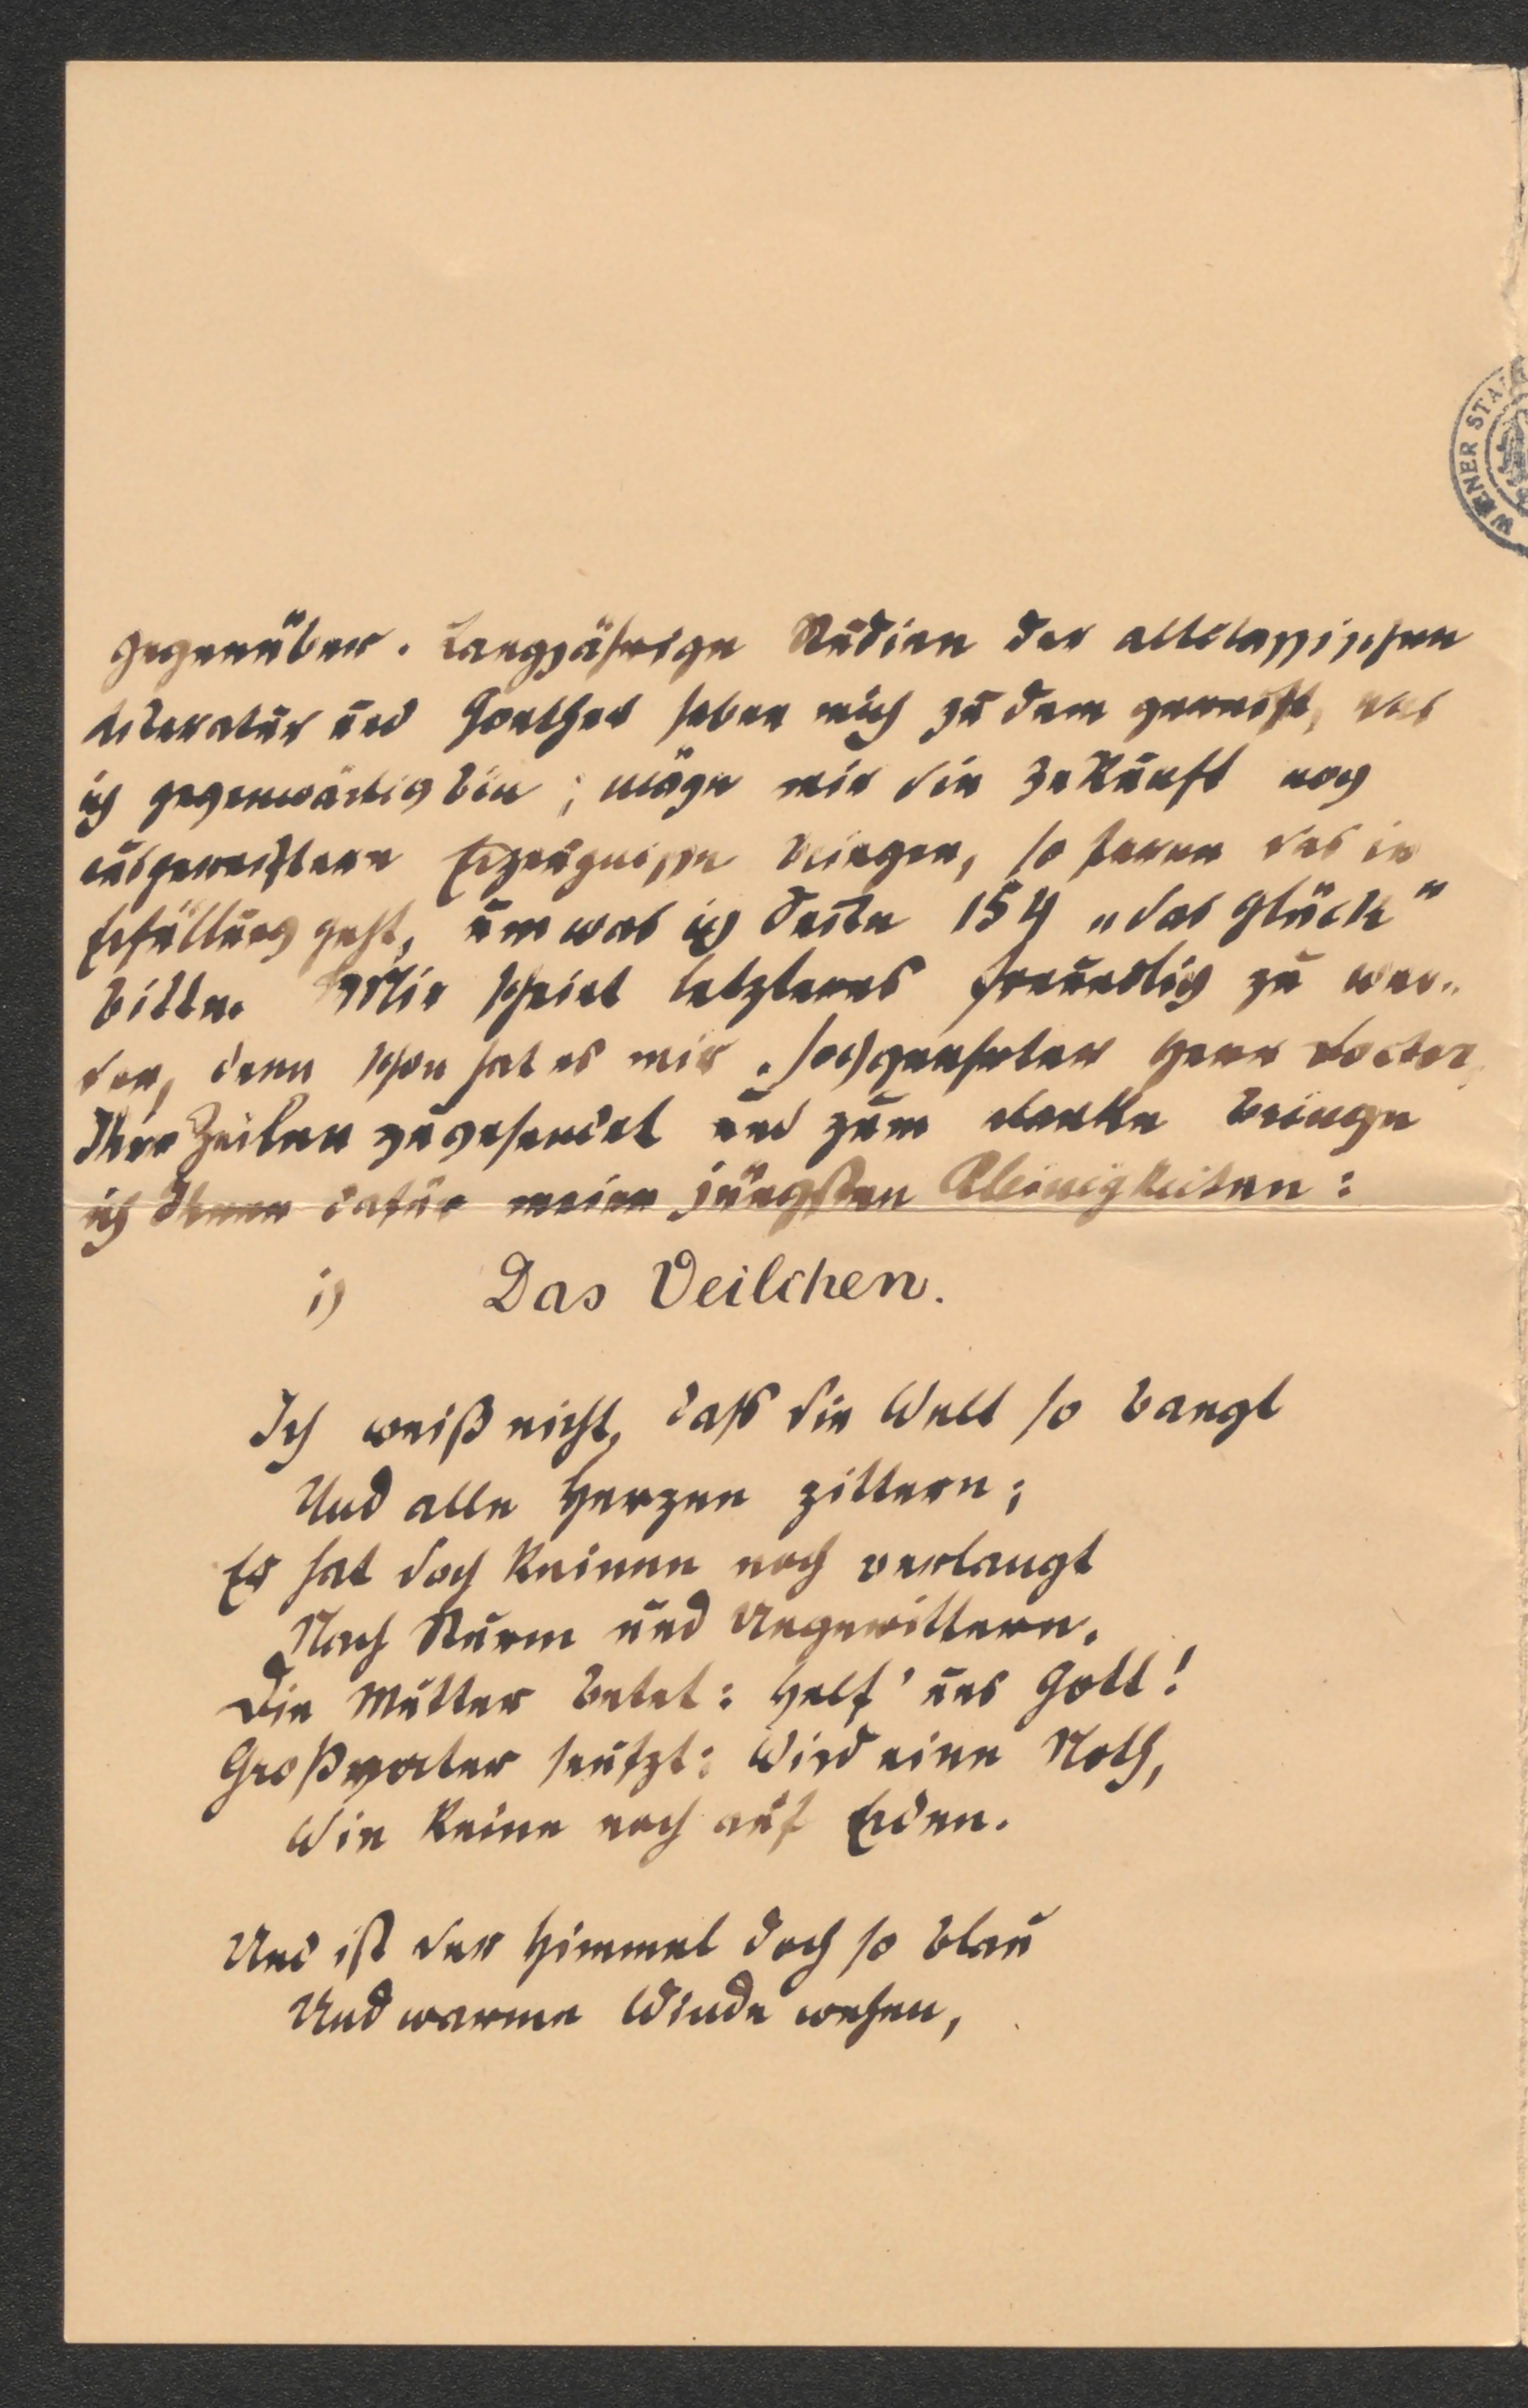 gegenüber. Langjährige Studien der altclassischen
Literatur und Goethes haben mich zu dem gereift, was
ich gegenwärtig bin; möge mir die Zukunft noch
ausgereiftere Erzeugnisse bringen, so ferne das in
Erfüllung geht, um was ich Seite 154 „das Glück“
bitte. Mir scheint letzteres freundlich zu wer-
den, denn schon hat es mir, hochgeehrter Herr Doctor,
Ihre Zeilen zugesendet und zum Danke bringe
ich Ihnen dafür meine jüngsten Kleinigkeiten:
1) Das Veilchen.
Ich weiß nicht, dass die Welt so bangt
Und alle Herzen zittern;
Es hat doch keinen noch verlangt
Nach Sturm und Ungewittern.
Die Mutter betet: Helf' uns Gott!
Großvater seufzt: Wird eine Noth,
Wie keine noch auf Erden.
Und ist der Himmel doch so blau
Und warme Winde wehen,
WIENER STA